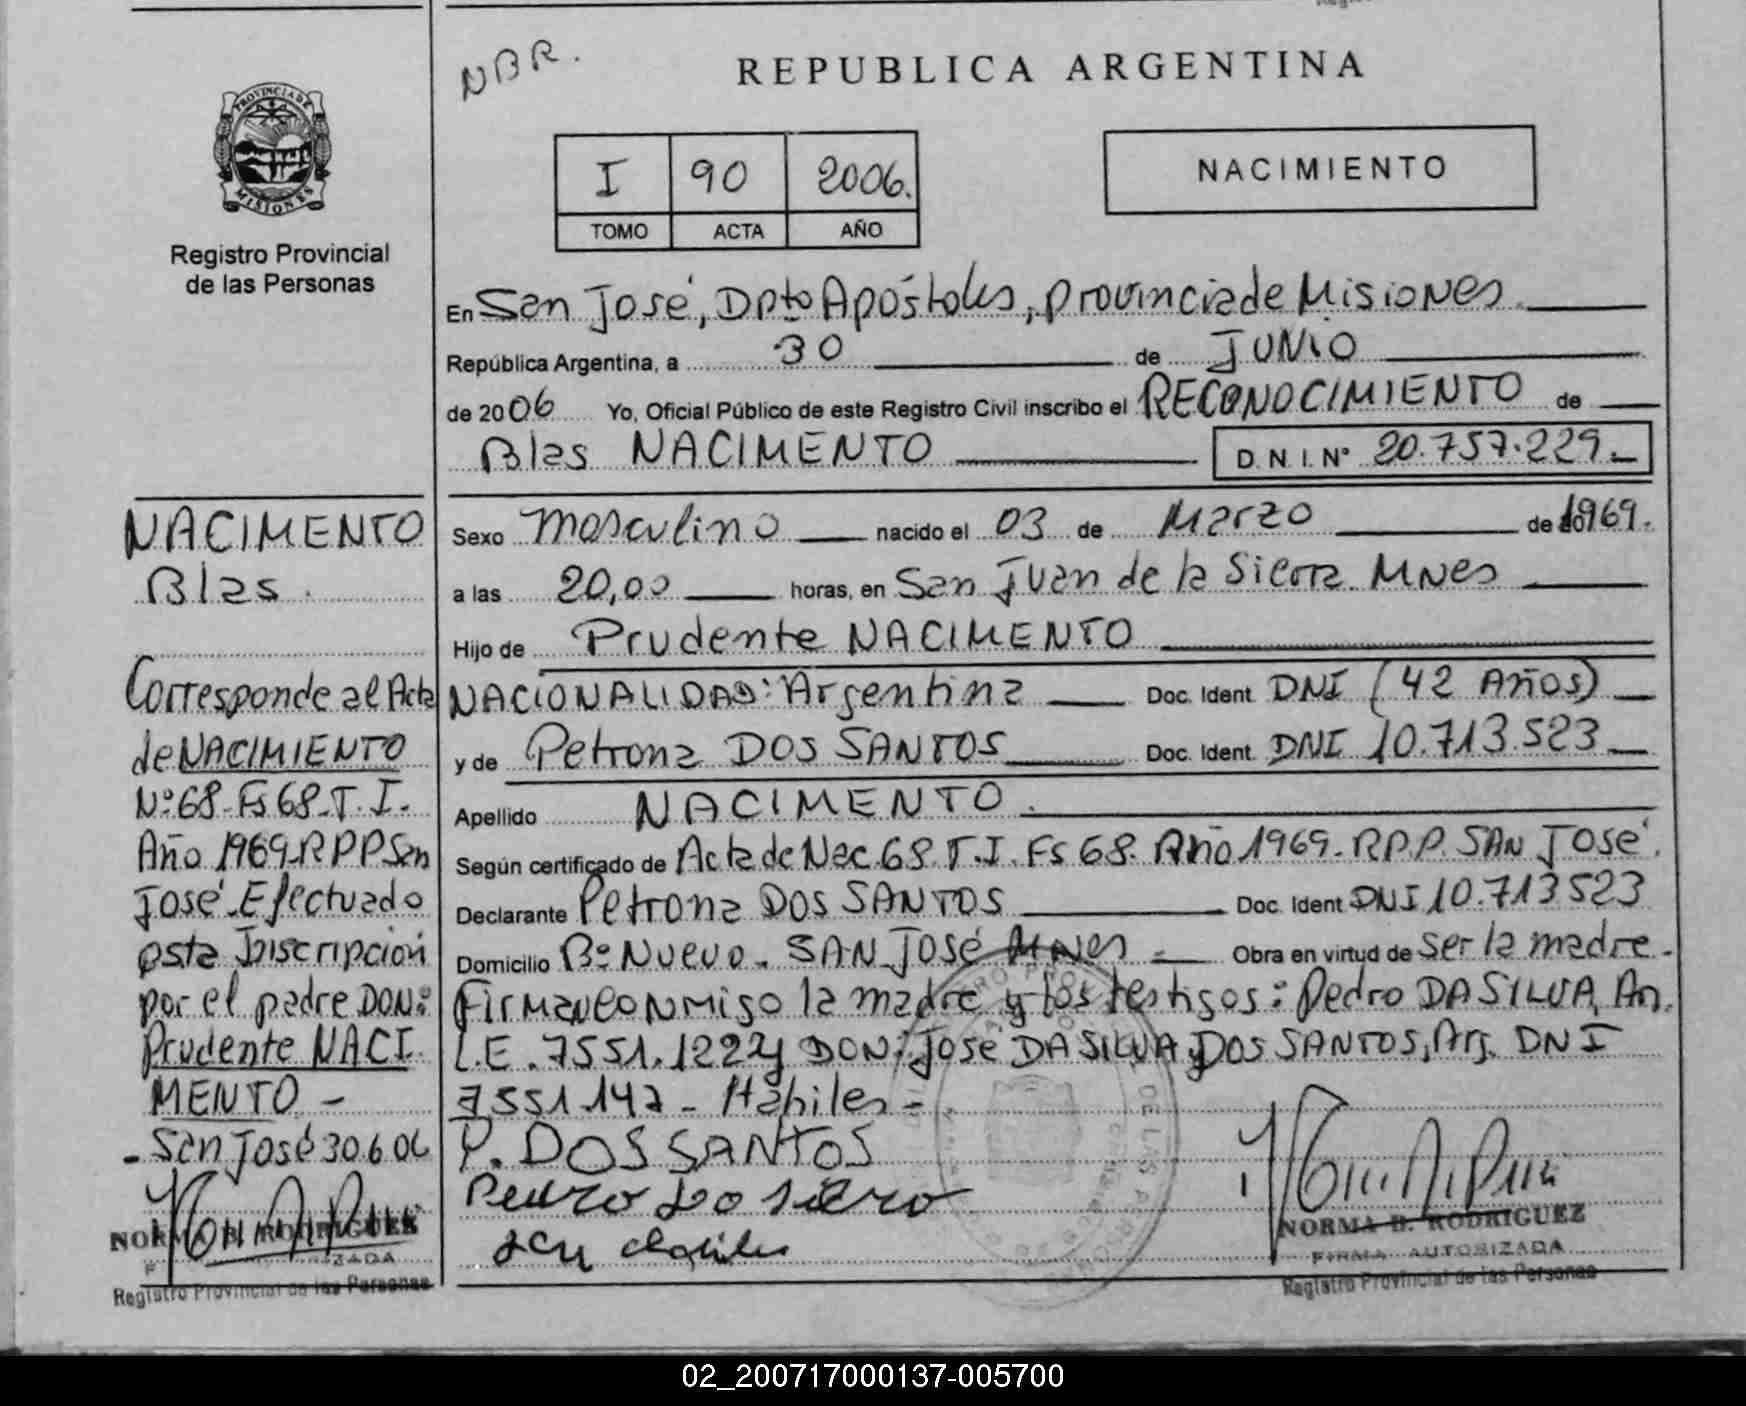 NBR.
REPUBLICA ARGENTINA
PROVINCIA DE
MISIONES
I 90 2006.
TOMO ACTA AÑO
NACIMIENTO
Registro Provincial
de las Personas
En San José, Dpto Apóstoles, provincia de Misiones
República Argentina, a 30 de JUNIO
de 2006 Yo, Oficial Público de este Registro Civil inscribo el RECONOCIMIENTO de
Blas NACIMENTO D.N.I. Nº 20.757.229.-
Sexo masculino nacido el 03 de Marzo de 1969.
a las 20,00 horas, en San Juan de la Sierra Mnes
Hijo de Prudente NACIMENTO
NACIONALIDAD: Argentina Doc. Ident. DNI (42 Años)
y de Petrona DOS SANTOS Doc. Ident. DNI 10.713.523
Apellido NACIMENTO.
Según certificado de Acta de Nac. 68. T.I. Fs 68. Año 1969. R.P.P. SAN José.
Declarante Petrona DOS SANTOS Doc. Ident DNI 10.713523
Domicilio Bº Nuevo. SAN José Mnes - Obra en virtud de ser la madre.
Firman conmigo la madre y los testigos: Pedro DA SILVA, An.
L.E. 7551.122 y DON: José DA SILVA DOS SANTOS, Arg. DNI
7551147 - Hábiles -
P. DOS SANTOS
Pedro
NORMA B. RODRIGUEZ
FIRMA AUTORIZADA
Registro Provincial de las Personas
NACIMENTO
Blas.
Corresponde al Acta
de NACIMIENTO
Nº 68 - Fs 68 - T. I.
Año 1969 - RPP San
José. Efectuado
esta Inscripción
por el padre DON:
Prudente NACI
MENTO -
- San José 30 6 06
NORMA B. RODRIGUEZ
Registro Provincial de las Personas
02_200717000137-005700